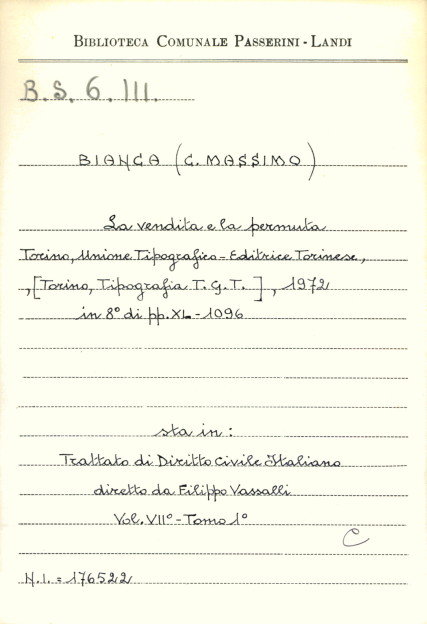 BIBLIOTECA COMUNALE PASSERINI - LANDI
B.S. 6. III.
BIANCA (C. MASSIMO)
La vendita e la permuta
Torino, Unione Tipografico-Editrice Torinese,
, [Torino, Tipografia T.G.T.], 1972
in 8° di pp. XL - 1096
sta in:
Trattato di Diritto Civile Italiano
diretto da Filippo Vassalli
Vol. VII° - Tomo 1°
C
N.I. = 176522